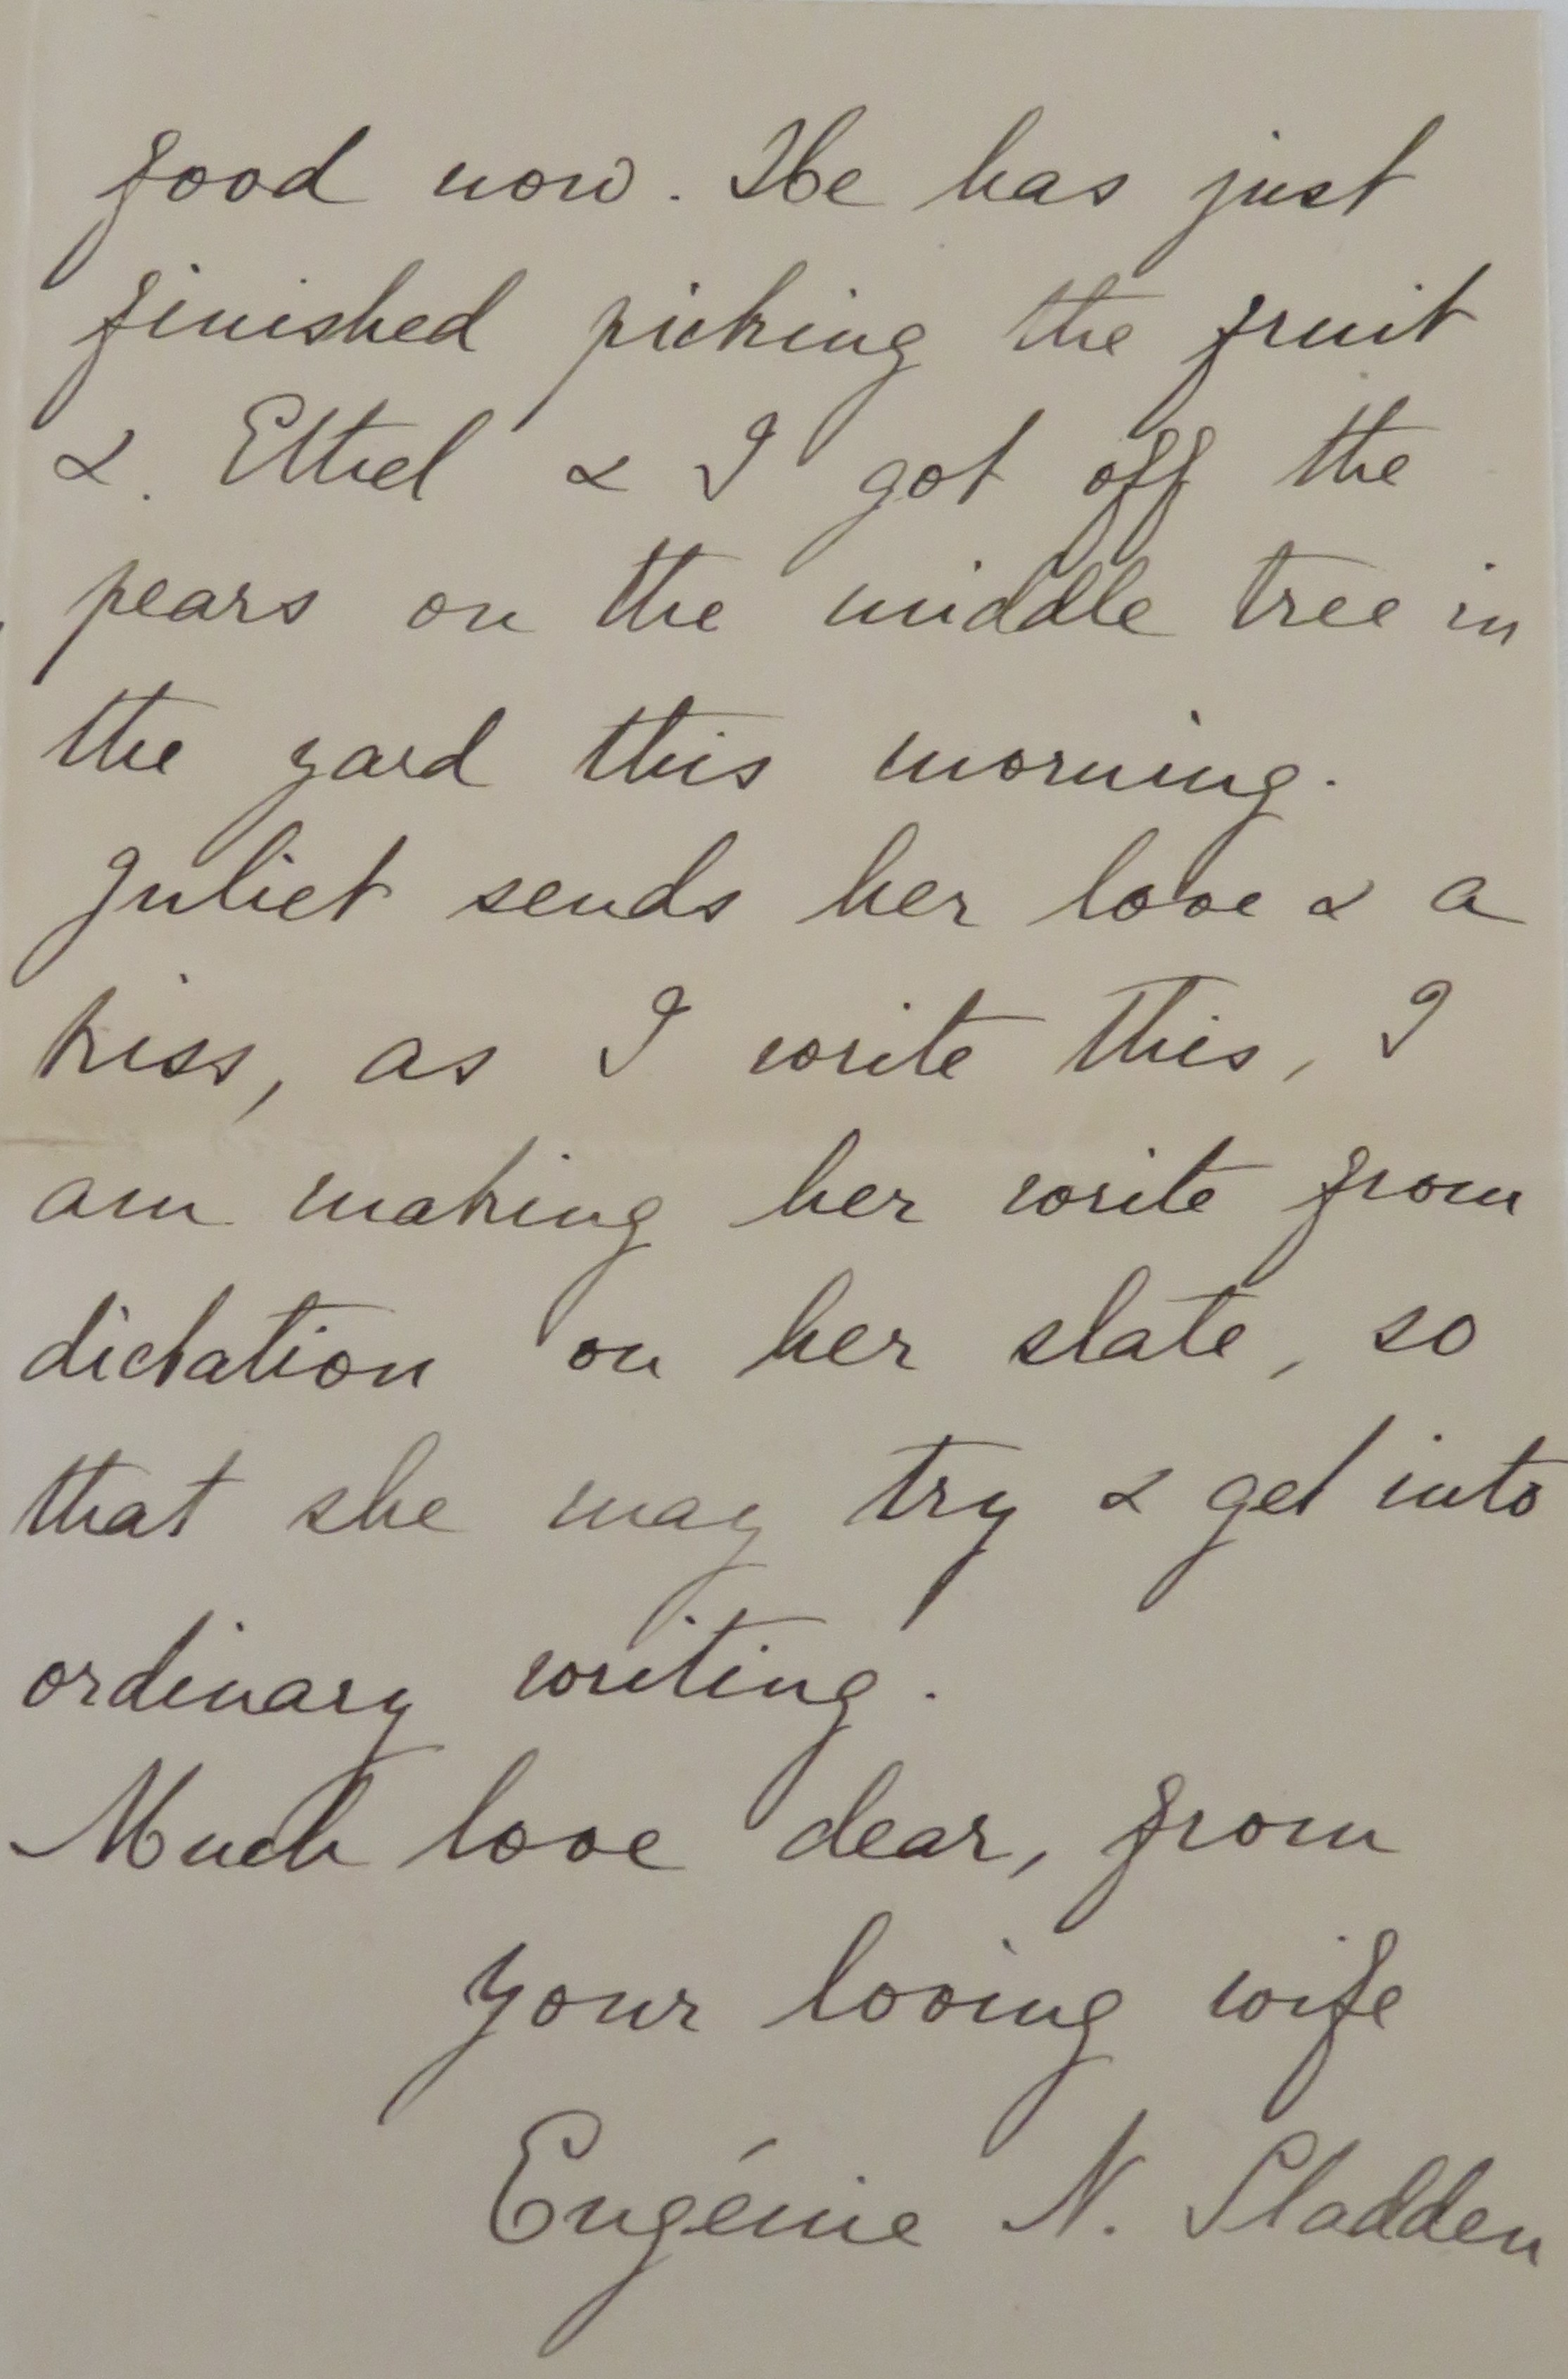 good now. He has just
finished picking the fruit
&. Ethel & I got off the
pears on the middle tree in
the yard this morning.
Juliet sends her love & a
kiss, as I write this, I
am making her write from
dictation on her slate, so
that she may try & get into
ordinary writing.
Much love dear, from
your loving wife
Eugénie N. Sladden